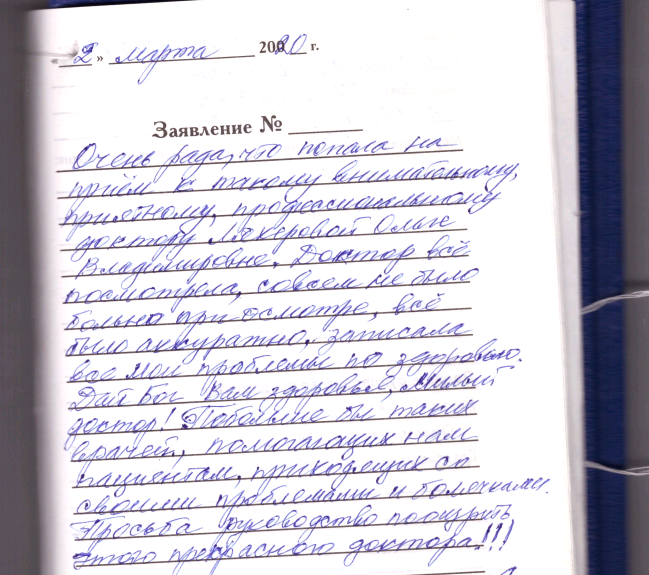 2 » марта 20020 г.
Заявление №
Очень рада, что попала на
приём к такому внимательному,
приятному, профессиональному
доктору Ляхеровой Ольге
Владимировне. Доктор всё
посмотрела, совсем не было
больно при осмотре, всё
было аккуратно, записала
все мои проблемы по здоровью.
Дай Бог Вам здоровья, Милый
доктор! Побольше бы таких
врачей, помогающих нам
пациентам, приходящих со
своими проблемами и болячками.
Просьба руководство поощрить
этого прекрасного доктора!!!